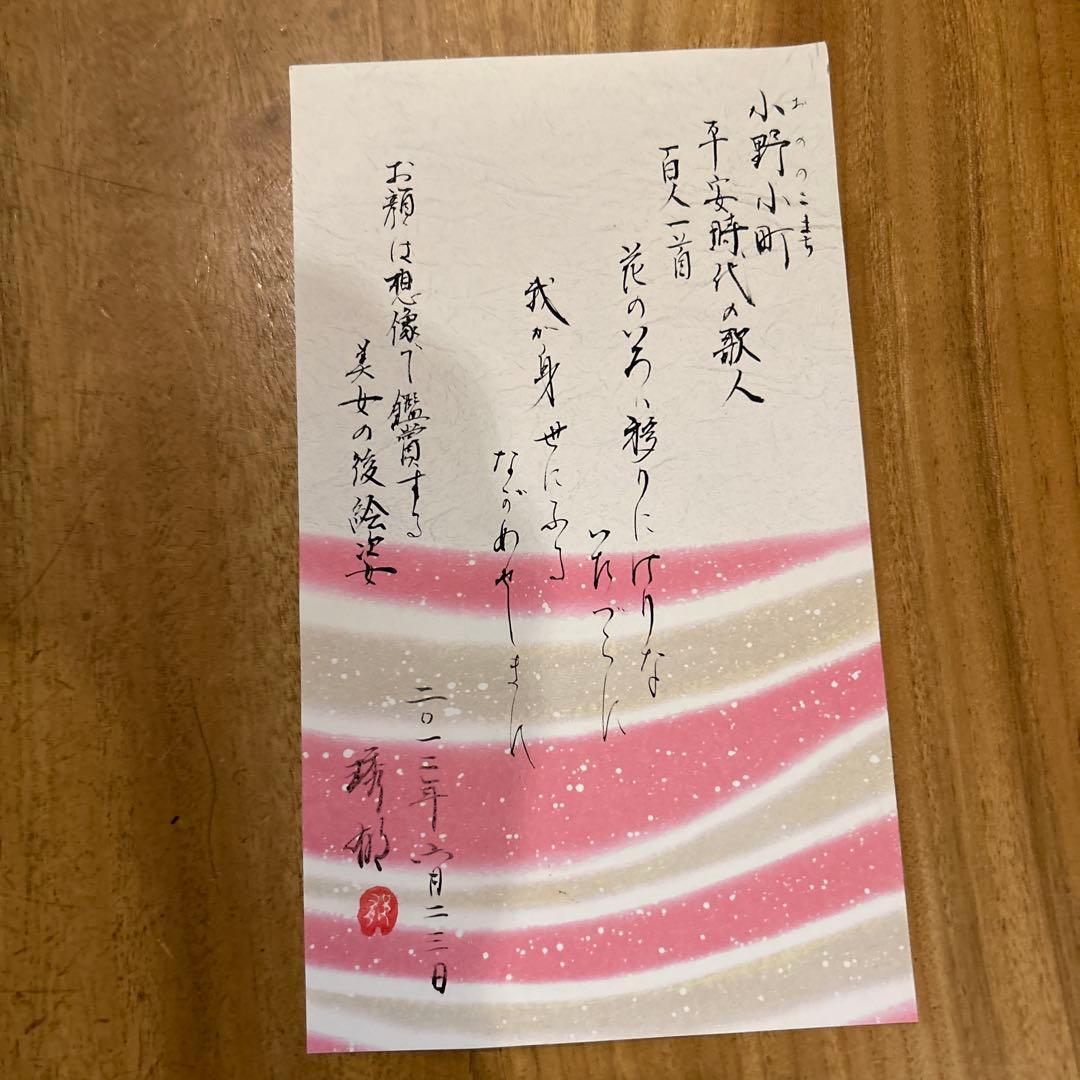 小野小町
おののこまち
平安時代の歌人
百人一首
花のいろハ移りにけりな
いたづらに
我が身世にふる
ながめせしまに
お顔は想像で鑑賞する
美女の後絵姿
二〇一二年六月二三日
琇郁